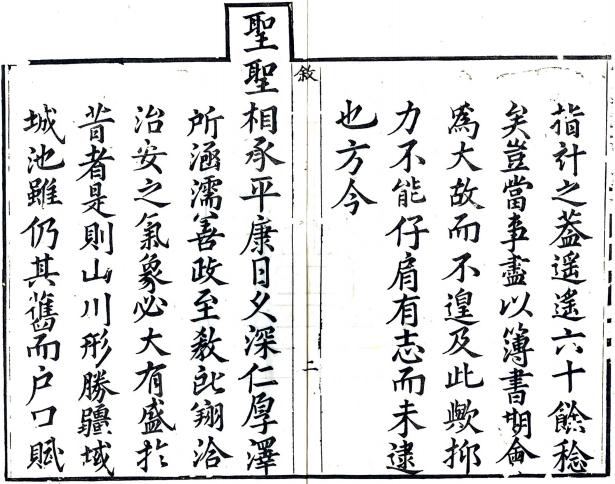 指計之葢遥遥六十餘稔
矣豈當事盡以簿書期會
爲大故而不遑及此歟抑
力不能仔肩有志而未逮
也方今
敘
二
聖聖相承平康日久深仁厚澤
所涵濡善政至教所翔洽
治安之氣象必大有盛於
昔者是則山川形勝疆域
城池雖仍其舊而户口賦